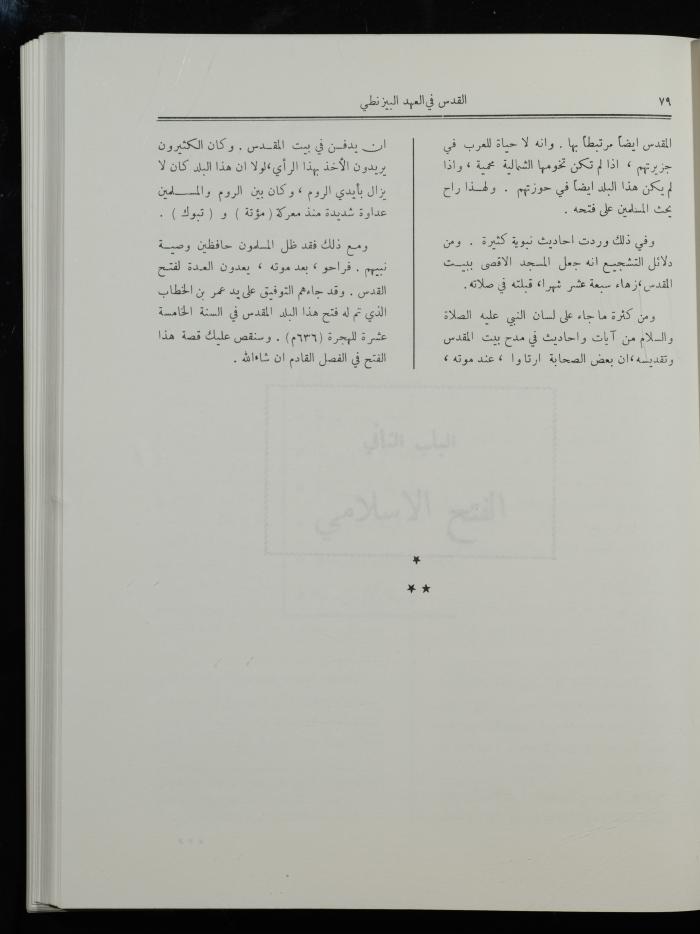 ٧٩
القدس في العهد البيزنطي
المقدس ايضاً مرتبطاً بها . وانه لا حياة للعرب في
جزيرتهم ، اذا لم تكن تخومها الشمالية محمية ، واذا
لم يكن هذا البلد ايضاً في حوزتهم . ولهذا راح
يحث المسلمين على فتحه .
وفي ذلك وردت احاديث نبوية كثيرة . ومن
دلائل التشجيع انه جعل المسجد الاقصى ببيت
المقدس،زهاء سبعة عشر شهرا، قبلته في صلاته.
ومن كثرة ما جاء على لسان النبي عليه الصلاة
والسلام من آيات واحاديث في مدح بيت المقدس
وتقديسه،ان بعض الصحابة ارتاوا ، عند موته ،
ان يدفن في بيت المقدس . وكان الكثيرون
يريدون الأخذ بهذا الرأي،لولا ان هذا البلد كان لا
يزال بأيدي الروم ، وكان بين الروم والمسلمين
عداوة شديدة منذ معركة ( مؤتة ) و ( تبوك ) .
ومع ذلك فقد ظل المسلمون حافظين وصية
نبيهم . فراحو ، بعد موته ، يعدون العدة لفتح
القدس . وقد جاءهم التوفيق على يد عمر بن الخطاب
الذي تم له فتح هذا البلد المقدس في السنة الخامسة
عشرة للهجرة (٦٣٦م) . وسنقص عليك قصة هذا
الفتح في الفصل القادم ان شاءالله .
الباب الثاني
الفتح الاسلامي